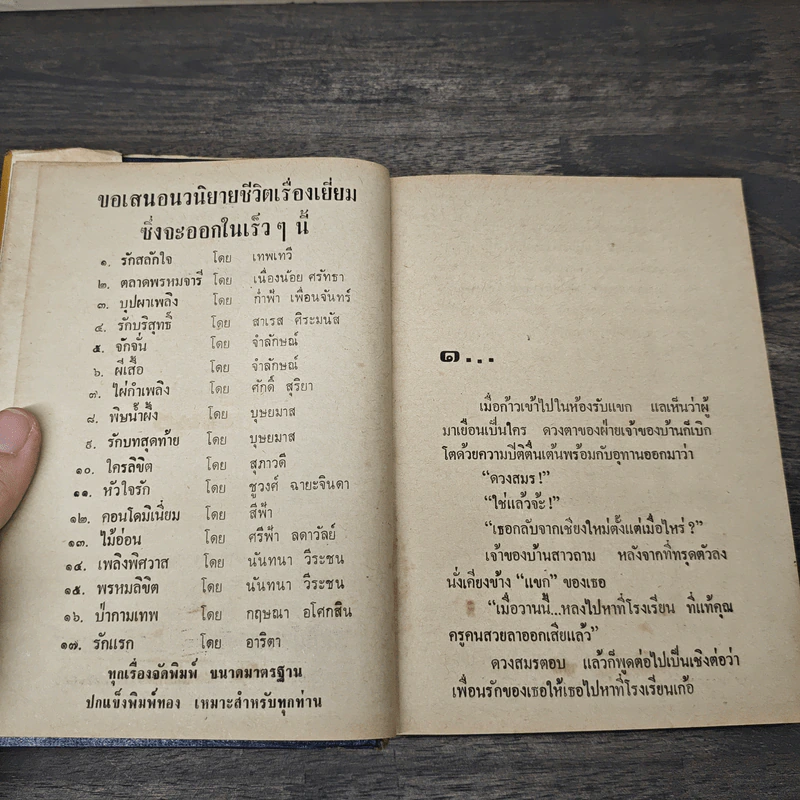 ขอเสนอนวนิยายชีวิตเรื่องเยี่ยม
ซึ่งจะออกในเร็ว ๆ นี้
๑. รักสลักใจ โดย เทพเทวี
๒. ตลาดพรหมจารี โดย เนื่องน้อย ศรัทธา
๓. บุปผาเพลิง โดย ก่ำฟ้า เพื่อนจันทร์
๔. รักบริสุทธิ์ โดย สาเรส ศิระมนัส
๕. จักจั่น โดย จำลักษณ์
๖. ผีเสื้อ โดย จำลักษณ์
๗. ไผ่กำเพลิง โดย ศักดิ์ สุริยา
๘. พิษน้ำผึ้ง โดย บุษยมาส
๙. รักบทสุดท้าย โดย บุษยมาส
๑๐. ใครลิขิต โดย สุภาวดี
๑๑. หัวใจรัก โดย ชูวงศ์ ฉายะจินดา
๑๒. คอนโดมิเนี่ยม โดย สีฟ้า
๑๓. ไม้อ่อน โดย ศรีฟ้า ลดาวัลย์
๑๔. เพลิงพิศวาส โดย นันทนา วีระชน
๑๕. พรหมลิขิต โดย นันทนา วีระชน
๑๖. ป่ากามเทพ โดย กฤษณา อโศกสิน
๑๗. รักแรก โดย อาริตา
ทุกเรื่องจัดพิมพ์ ขนาดมาตรฐาน
ปกแข็งพิมพ์ทอง เหมาะสำหรับทุกท่าน
๑...
เมื่อก้าวเข้าไปในห้องรับแขก แลเห็นว่าผู้
มาเยือนเป็นใคร ดวงตาของฝ่ายเจ้าของบ้านก็เบิก
โตด้วยความปิติตื่นเต้นพร้อมกับอุทานออกมาว่า
“ดวงสมร!”
“ใช่แล้วจ้ะ!”
“เธอกลับจากเชียงใหม่ตั้งแต่เมื่อไหร่?”
เจ้าของบ้านสาวถาม หลังจากที่ทรุดตัวลง
นั่งเคียงข้าง “แขก” ของเธอ
“เมื่อวานนี้...หลงไปหาที่โรงเรียน ที่แท้คุณ
ครูคนสวยลาออกเสียแล้ว”
ดวงสมรตอบ แล้วก็พูดต่อไปเป็นเชิงต่อว่า
เพื่อนรักของเธอให้เธอไปหาที่โรงเรียนเก้อ